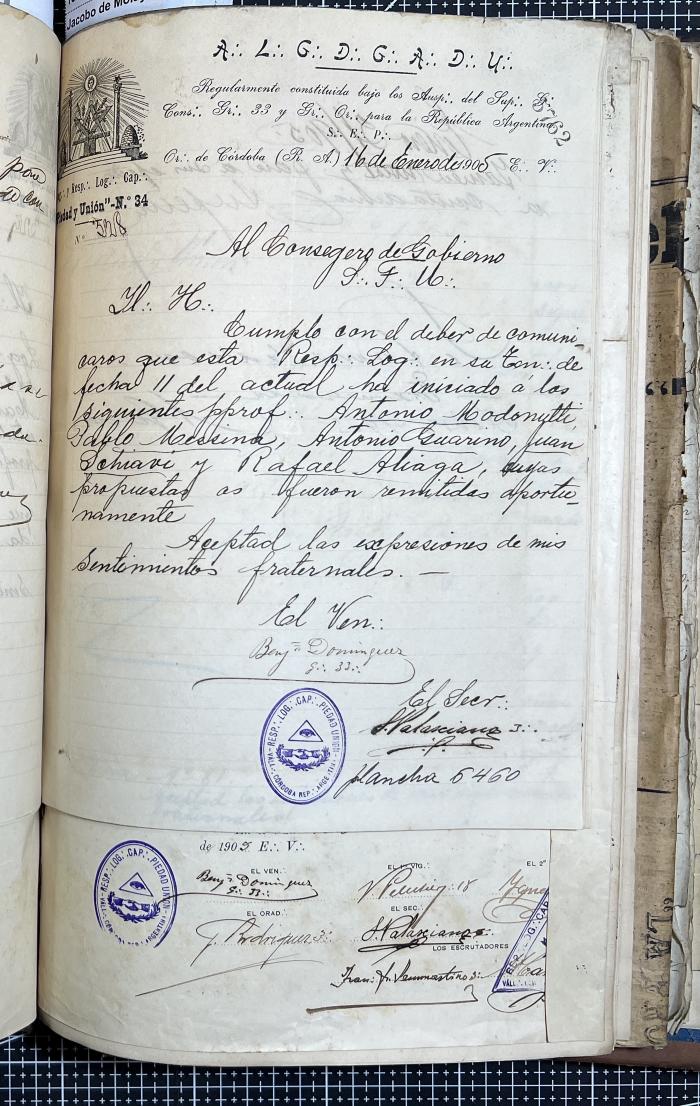 Jacobo de Molay
A∴ L∴ G∴ D∴ G∴ A∴ D∴ U∴
Regularmente constituida bajo los Ausp∴ del Sup∴ G∴
Cons∴ Gr∴ 33 y Gr∴ Or∴ para la República Argentina
S∴ E∴ P∴
Or∴ de Córdoba (R. A.) 16 de Enero de 1905 E∴ V∴
Resp∴ Log∴ Cap∴
"Piedad y Unión"-N.º 34
Nº 528
Al Consegero de Gobierno
S∴ F∴ U∴
Il∴ H∴
Cumplo con el deber de comuni-
caros que esta Resp∴ Log∴ en su Ten∴ de
fecha 11 del actual ha iniciado á los
siguientes pprof∴ Antonio Modonutti,
Pablo Messina, Antonio Guarino, Juan
Schiavi y Rafael Aliaga, cuyas
propuestas os fueron remitidas oportu-
namente
Aceptad las expresiones de mis
sentimientos fraternales. —
El Ven∴
Benjn Dominguez
G∴ 33∴
El Secr∴
plancha 6460
RESP∴ LOG∴ CAP∴ PIEDAD UNION
CÓRDOBA REP∴ ARGENTINA
de 1905 E∴ V∴
EL VEN∴
Benjn Dominguez
G∴ 33∴
EL 1er VIG∴
EL 2º
EL ORAD∴
F. Rodriguez
EL SEC∴
LOS ESCRUTADORES
RESP∴ LOG∴ CAP∴ PIEDAD UNION